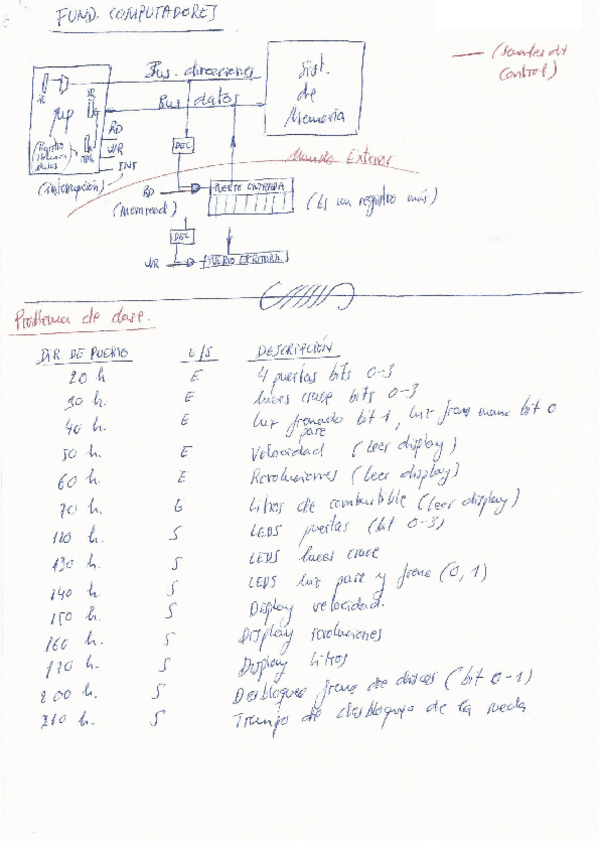 FUND. COMPUTADORES
Bus. direcciones
Bus datos
Sist. de Memoria
(señales de control)
μp
RD
WR
INT
(interrupción)
DEC
Mundo Exterior
RD
(memread)
PUERTO ENTRADA
(Es un registro más)
DEC
WR
PUERTO ESCRITURA
Problema de clase.
DIR. DE PUERTO E/S DESCRIPCIÓN
20 h E 4 puertas bits 0-3
30 h. E luces cruce bits 0-3
40 h. E luz frenado bit 1, luz freno mano bit 0
pare
50 h. E Velocidad (leer display)
60 h. E Revoluciones (leer display)
70 h. E Litros de combustible (leer display)
120 h. S LEDS puertas (bit 0-3)
130 h. S LEDS luces cruce
140 h. S LEDS luz pare y freno (0, 1)
150 h. S Display velocidad.
160 h. S Display revoluciones
170 h. S Display litros
200 h. S Desbloqueo freno de discos (bit 0-1)
210 h. S Tiempo de desbloqueo de la rueda